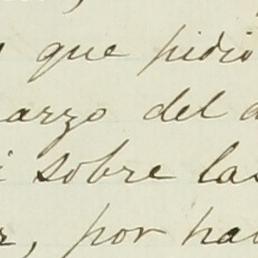 que pidió
arzo del a
i sobre las
r, por hab